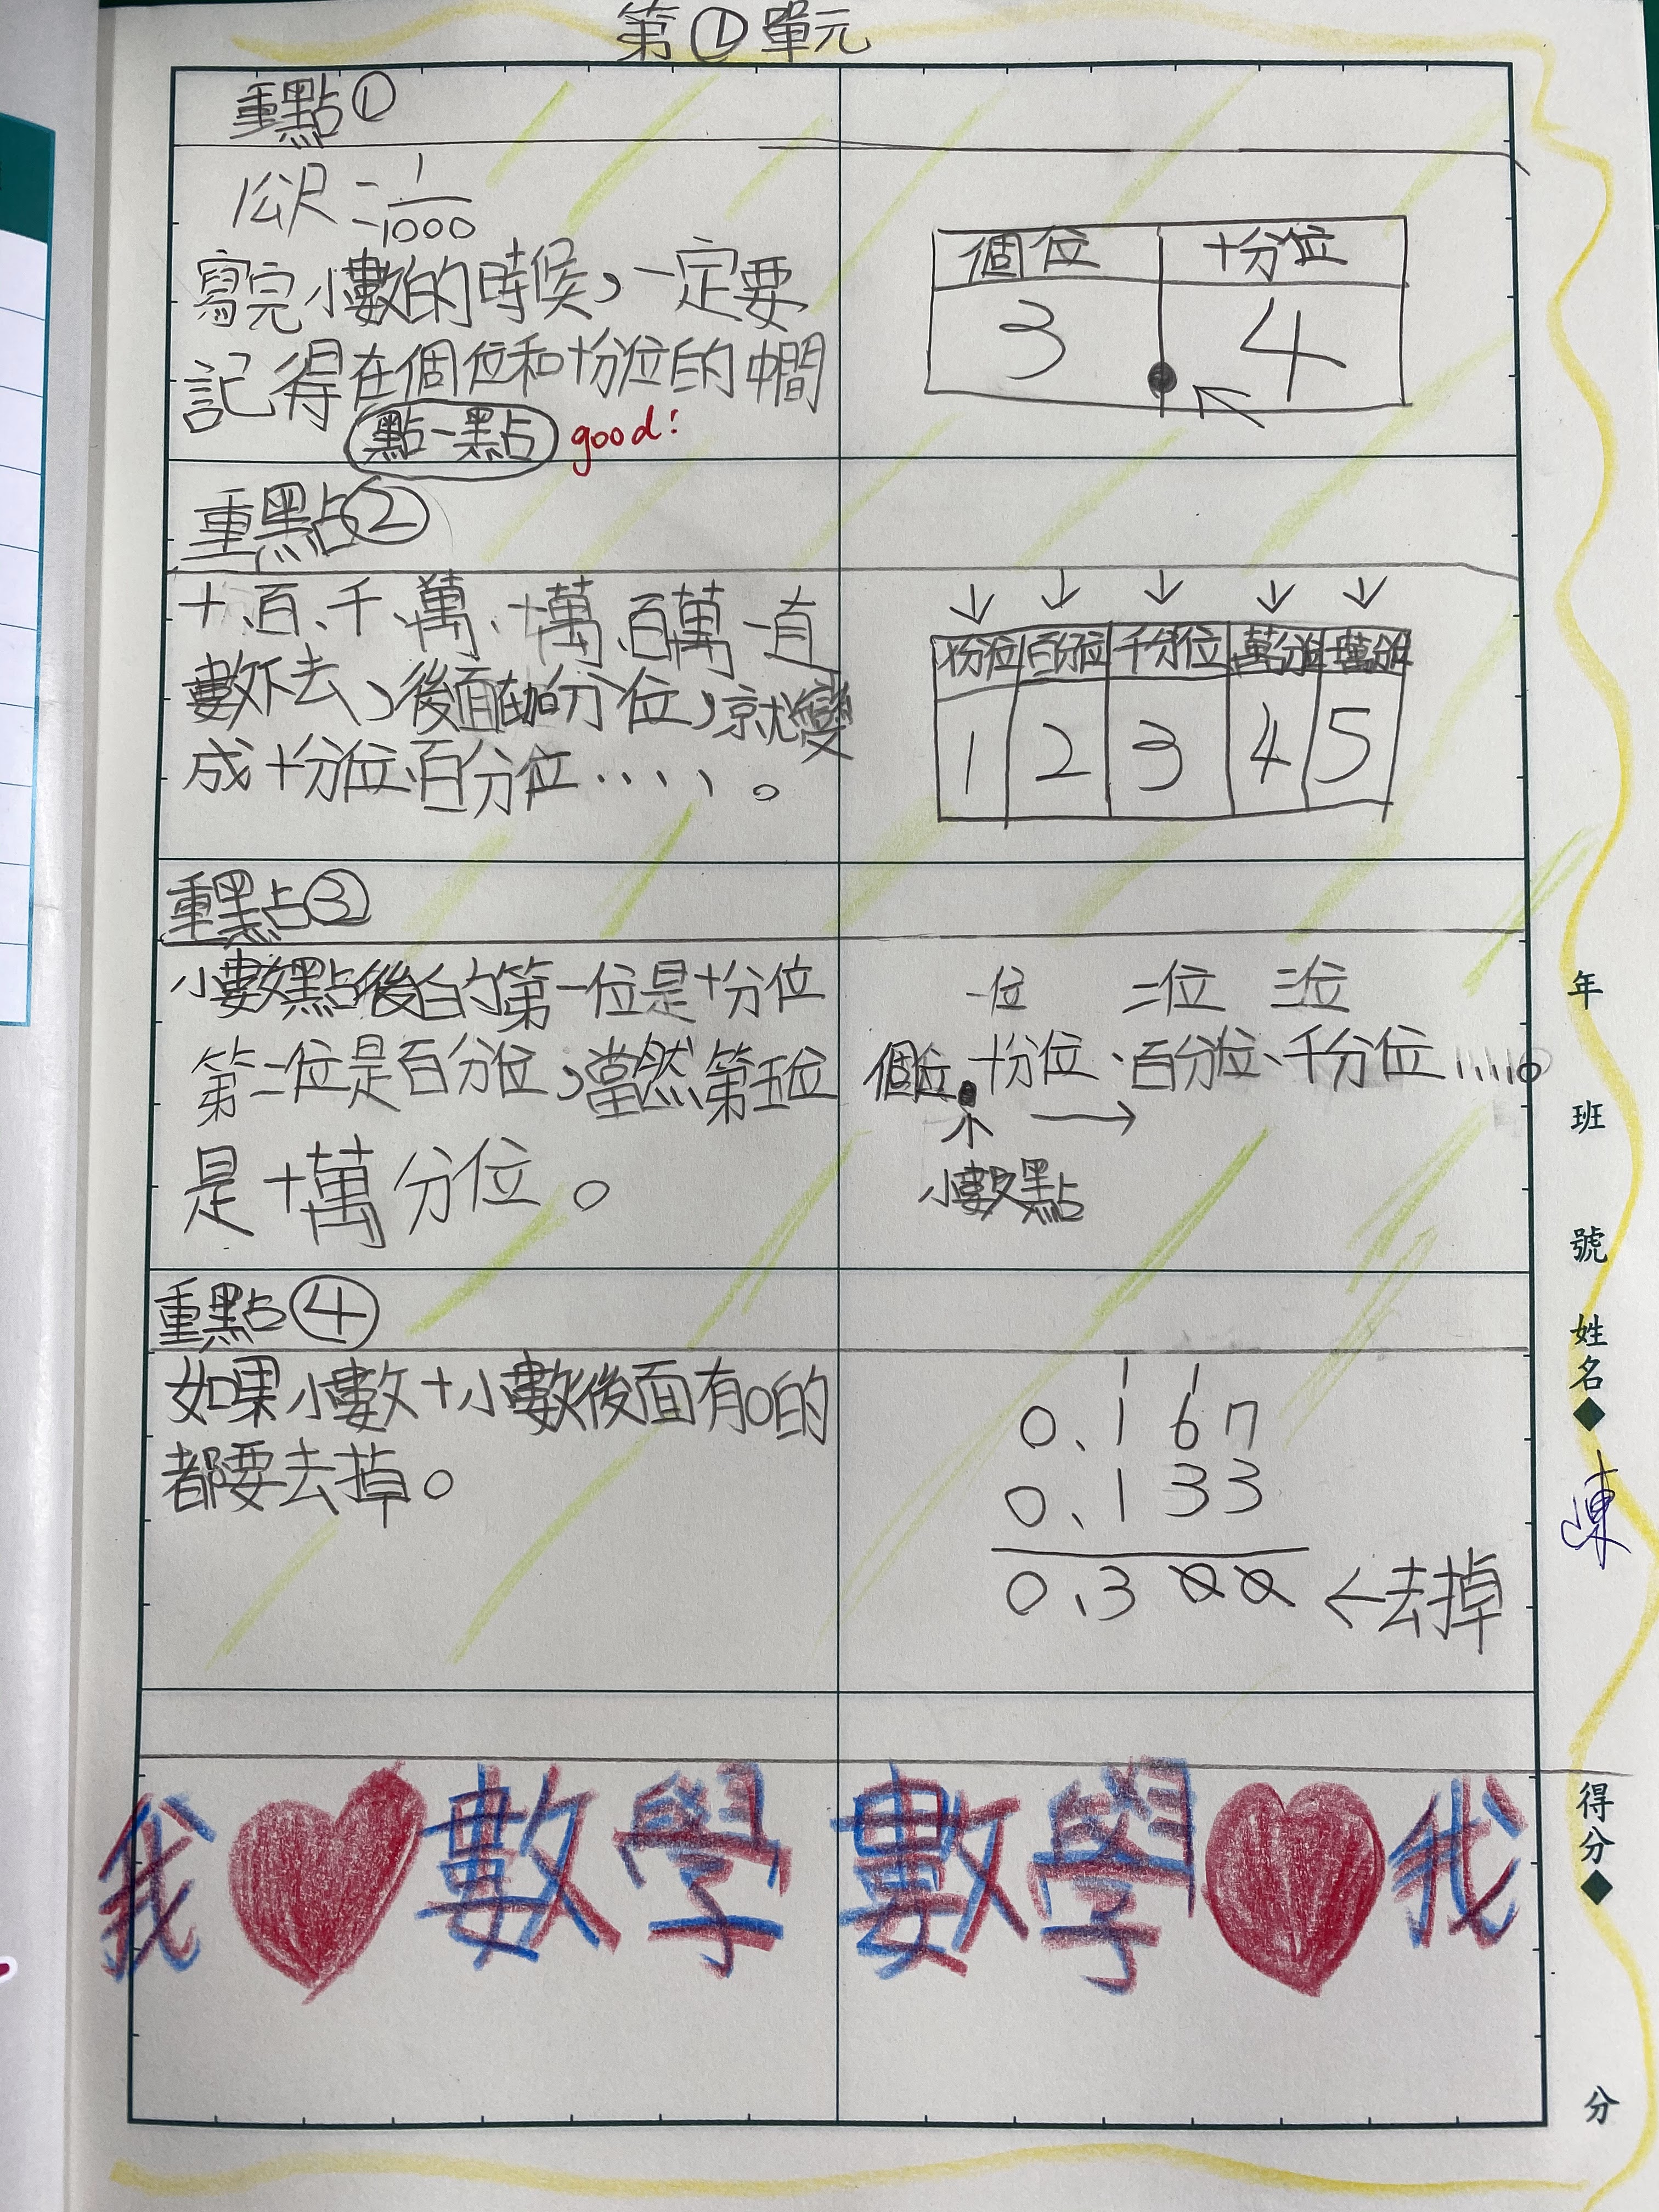 第①單元
重點①
1公尺=1/1000
寫完小數的時候，一定要
記得在個位和十分位的中間
點一點 good!
個位 十分位
3 . 4
重點②
十、百、千、萬、十萬、百萬一直
數下去，後面在加分位，就變
成十分位、百分位....、。
↓ ↓ ↓ ↓ ↓
十分位 百分位 千分位 萬分位 十萬分位
1 2 3 4 5
重點③
小數點後的第一位是十分位
第二位是百分位，當然第五位
是十萬分位。
一位 二位 三位
個位.十分位、百分位、千分位、、、、、。
↑ →
小數點
重點④
如果小數+小數後面有0的
都要去掉。
1 1
0.167
0.133
0.300 ←去掉
我❤數學 數學❤我
年
班
號
姓名◆
陳
得分◆
分